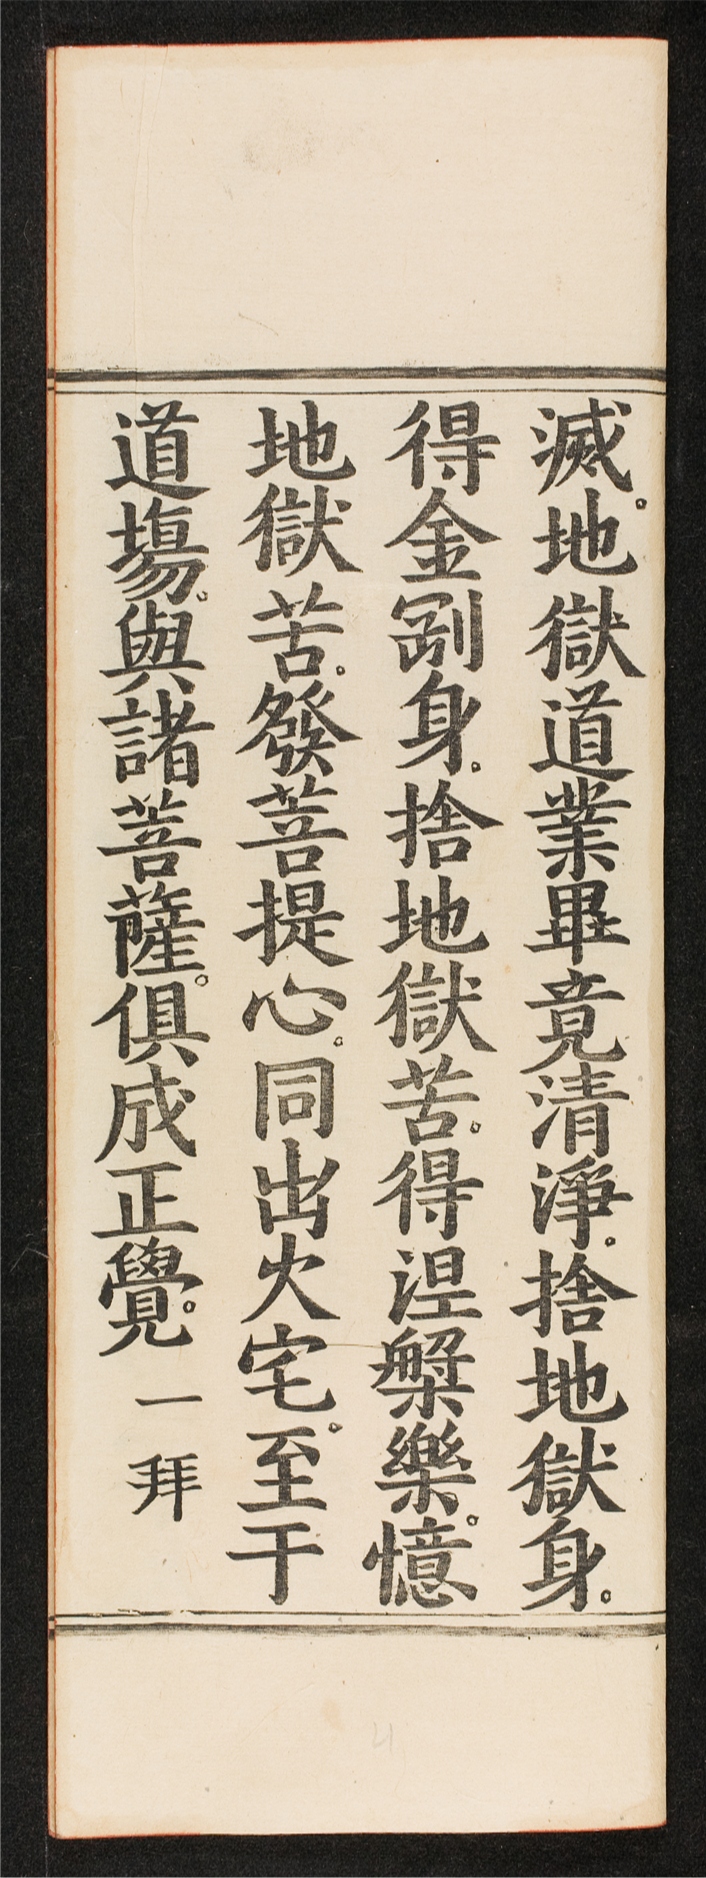 滅。地獄道業畢竟清淨。捨地獄身。
得金剛身。捨地獄苦。得涅槃樂。憶
地獄苦。發菩提心。同出火宅。至于
道塲。與諸菩薩。俱成正覺。一拜